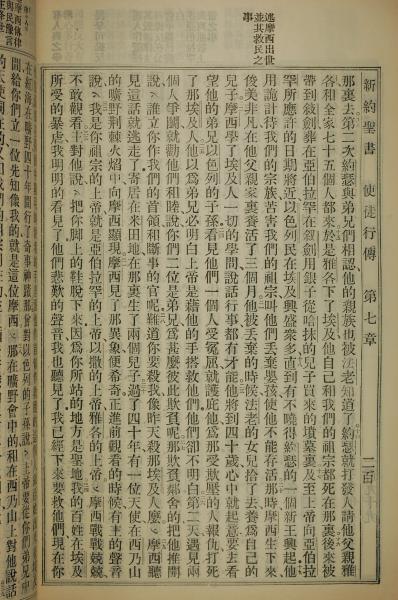 新約聖書 使徒行傳 第七章 二百
那裏去第二次約瑟與弟兄們相認他的親族也被法老知道了約瑟就打發人請他父親雅
各和全家七十五個人都來於是雅各下了埃及他自己和我們的祖宗都死在那裏後來被
帶到敘劍葬在亞伯拉罕在敘劍用銀子從哈抹的兒子買來的墳墓裏及至上帝向亞伯拉
罕所應許的日期將近以色列民在埃及興盛衆多直到有不曉得約瑟的一個新王興起他
用詭計待我們的宗族苦害我們的祖宗叫他們丟棄嬰孩使他不能存活那時摩西生下來
俊美非凡在他父親家裏養活了三個月他被丟棄的時候法老的女兒拾了去養爲自己的
兒子摩西學了埃及人一切的學問說話行事都有才能他將到四十歲心中就起意要去看
望他的弟兄以色列的子孫看見他們一個人受寃屈就護庇他爲那受欺壓的人報仇打死
了那埃及人他以爲弟兄必明白上帝是藉他的手搭救他們他們卻不明白第二天遇見兩
個人爭鬭就勸他們和睦說你們二位是弟兄爲甚麼彼此欺負呢那欺負鄰舍的把他推開
說誰立你作我們的首領和斷事的官呢難道你要殺我像昨天殺那埃及人麼摩西聽
見這話就逃走了寄居在米田地在那裏生了兩個兒子過了四十年有一位天使在西乃山
的曠野荊棘火焰中向摩西顯現摩西見了那異象便希奇正進前觀看的時候有主的聲音
說我是你祖宗的上帝就是亞伯拉罕的上帝以撒的上帝雅各的上帝摩西戰戰兢兢
不敢觀看主對他說把你腳上的鞋脫下來因爲你所站的地方是聖地我的百姓在埃及
所受的暴虐我明明的看見了他們悲歎的聲音我也聽見了我已經下來要救他們現在你
述摩西出世
並其救民之
事
間給你們立一位先知像我的就是這位摩西那在曠野會中的和在西乃山對他說話